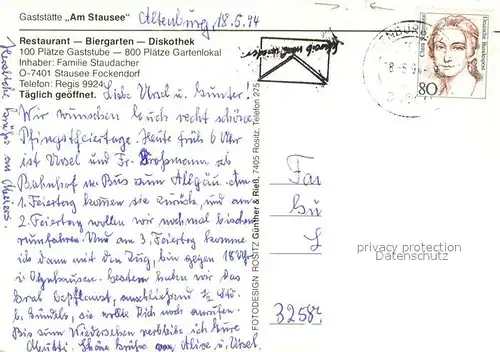 Gaststätte „Am Stausee"
Altenburg, 18.5.94
Restaurant — Biergarten — Diskothek
100 Plätze Gaststube — 800 Plätze Gartenlokal
Inhaber: Familie Staudacher
O-7401 Stausee Fockendorf
Telefon: Regis 9924
Täglich geöffnet.
Liebe Ursel u. Gunter!
Wir wünschen Euch recht schöne
Pfingstfeiertage. Heute früh 6 Uhr
ist Ursel und Fr. Großmann ab
Bahnhof m. Bus zum Allgäu. Am
1. Feiertag kommen sie zurück, und am
2. Feiertag wollen wir noch mal bischen
rumfahren. Und am 3. Feiertag komme
ich dann mit dem Zug, bin gegen 18 Uhr
in Gestern haben wir das
Grab bepflanzt, anschließend 1/2 Std.
b. Gundels, sie wollte Dich noch anrufen.
Bis zum Wiedersehen verbleibe ich Eure
Mutti. Schöne Grüße von Alise u. Ursel.
Herzliche Grüße an
FOTODESIGN ROSITZ Günther & Rieß, 7405 Rositz, Telefon 275
NBUR
8-5.94
Deutsche Bundespost
80
Fa
Gü
L
3258
privacy protection
Datenschutz